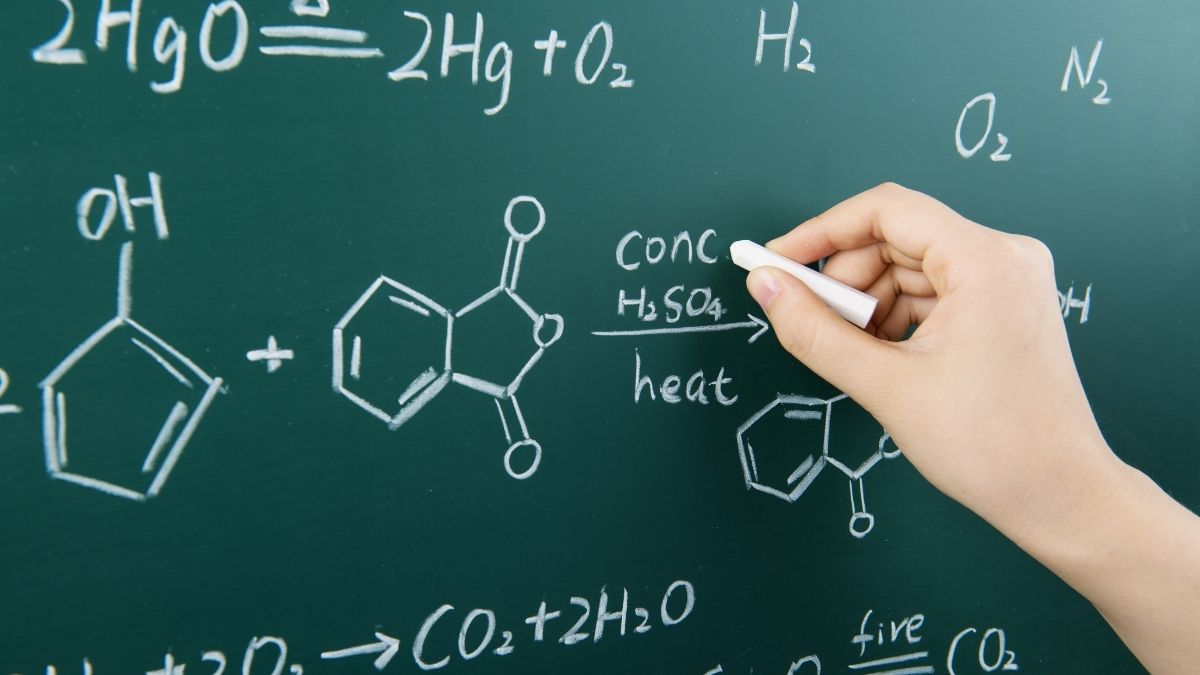 2HgO ≝ 2Hg + O₂
H₂
N₂
O₂
OH
+
O
O
O
conc.
H₂SO₄
heat
O
O
→ CO₂ + 2H₂O
fire
CO₂